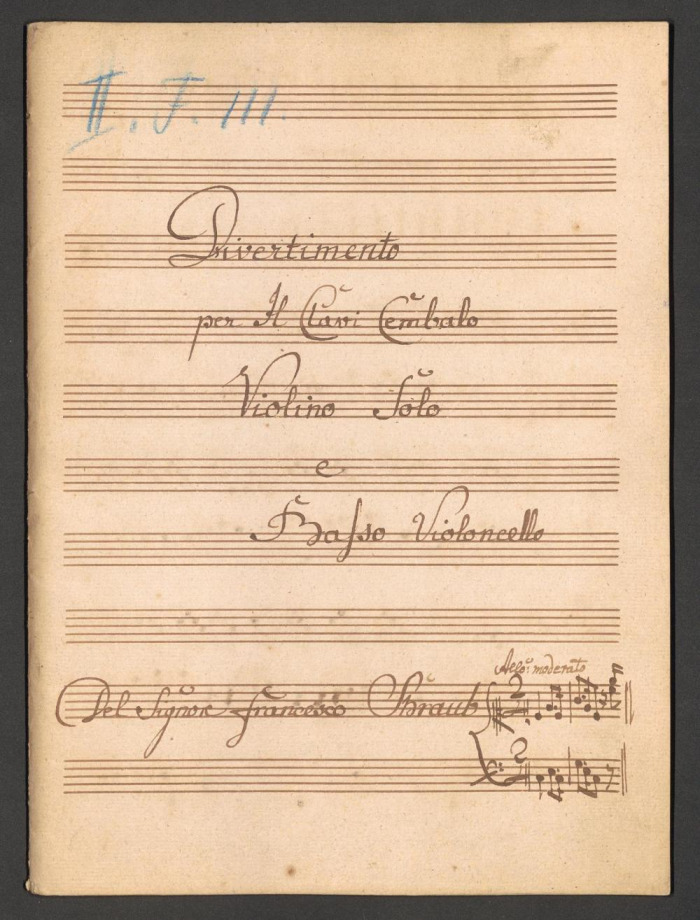 II. F. III.
Divertimento
per Il Clavi Cembalo
Violino Solo
e
Basso Violoncello
Allo: moderato
Del Signor Francesco Schraub